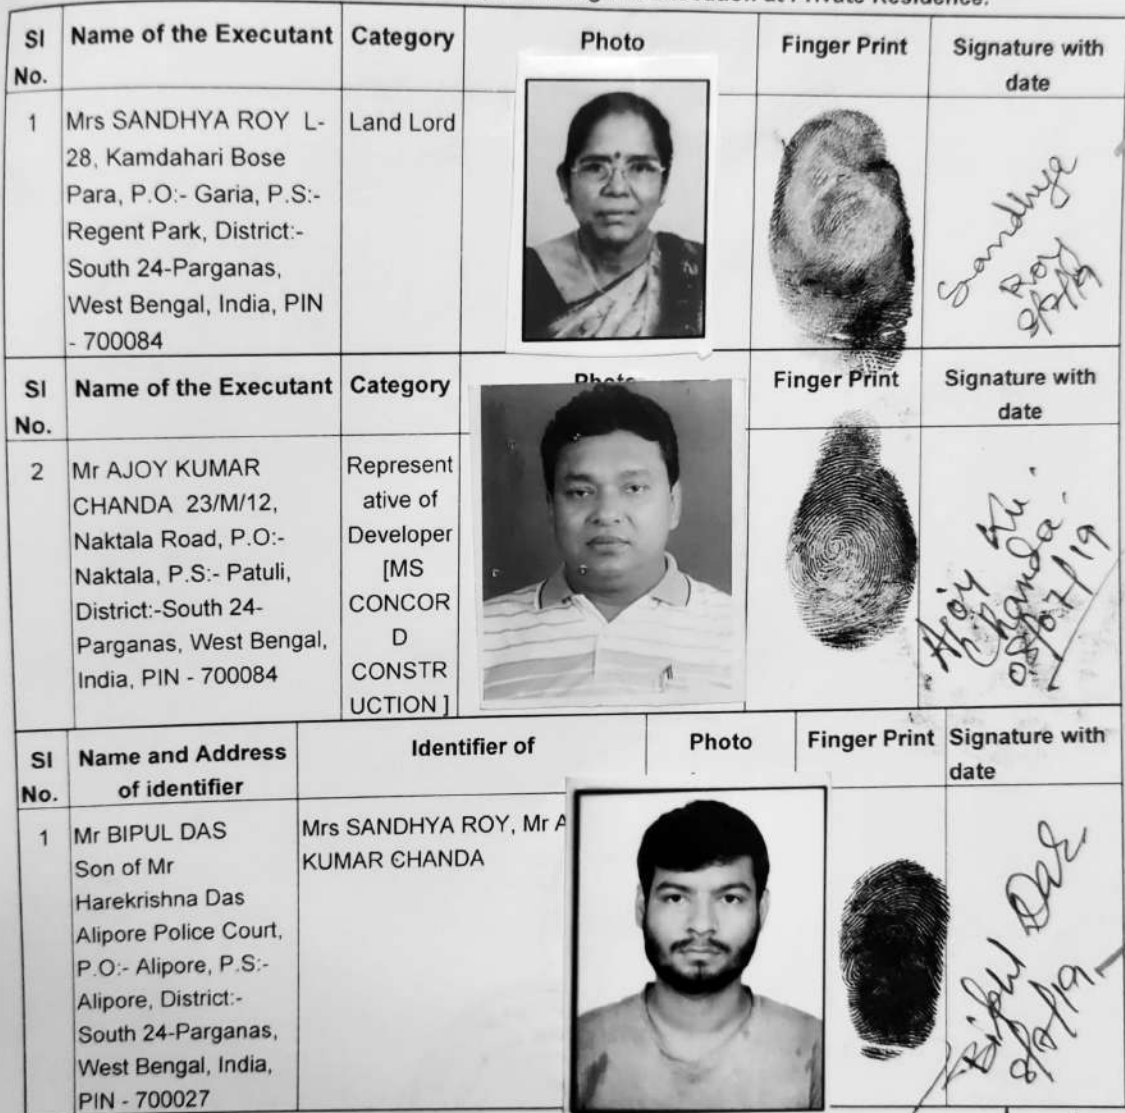 at Private Residence.
Sl No. Name of the Executant Category Photo Finger Print Signature with date
1 Mrs SANDHYA ROY L-
28, Kamdahari Bose
Para, P.O:- Garia, P.S:-
Regent Park, District:-
South 24-Parganas,
West Bengal, India, PIN
- 700084
Land Lord
Sandhya
Roy
8/7/19
Sl No. Name of the Executant Category Photo Finger Print Signature with date
2 Mr AJOY KUMAR
CHANDA 23/M/12,
Naktala Road, P.O:-
Naktala, P.S:- Patuli,
District:-South 24-
Parganas, West Bengal,
India, PIN - 700084
Represent
ative of
Developer
[MS
CONCOR
D
CONSTR
UCTION ]
Ajoy Ku.
Chanda.
08/07/19
Sl No. Name and Address of identifier Identifier of Photo Finger Print Signature with date
1 Mr BIPUL DAS
Son of Mr
Harekrishna Das
Alipore Police Court,
P.O:- Alipore, P.S:-
Alipore, District:-
South 24-Parganas,
West Bengal, India,
PIN - 700027
Mrs SANDHYA ROY, Mr A
KUMAR CHANDA
Bipul Das
8/7/19